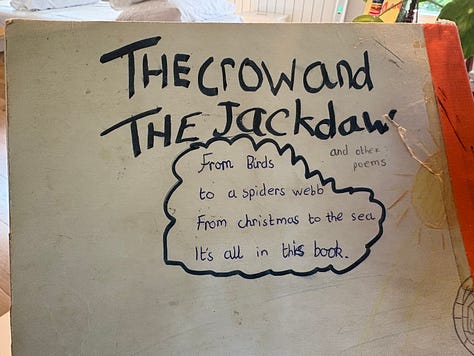 THE CROW and
THE Jackdaw
and other
poems
From Birds
to a spiders webb
From christmas to the sea
It's all in this book.